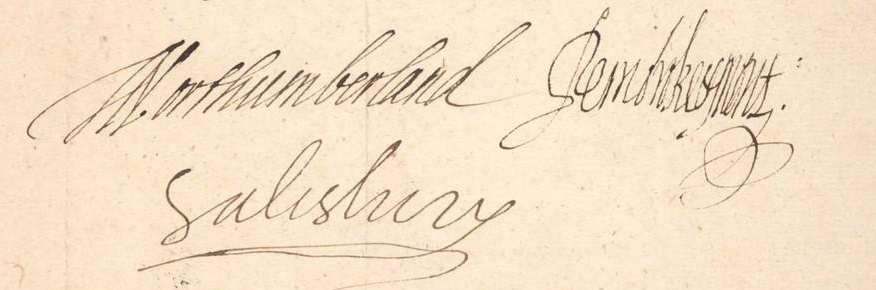 Northumberland Pembroke&mont:
Salisbury